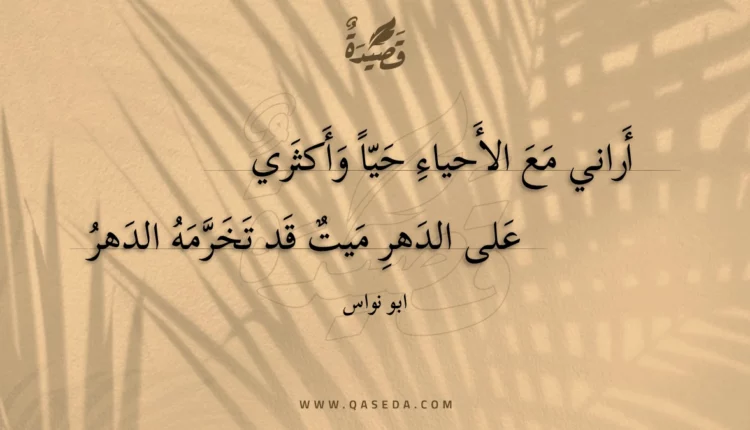 قَصِيدَةٌ
أَراني مَعَ الأَحياءِ حَيّاً وَأَكثَري
عَلى الدَهرِ مَيتٌ قَد تَخَرَّمَهُ الدَهرُ
ابو نواس
WWW.QASEDA.COM